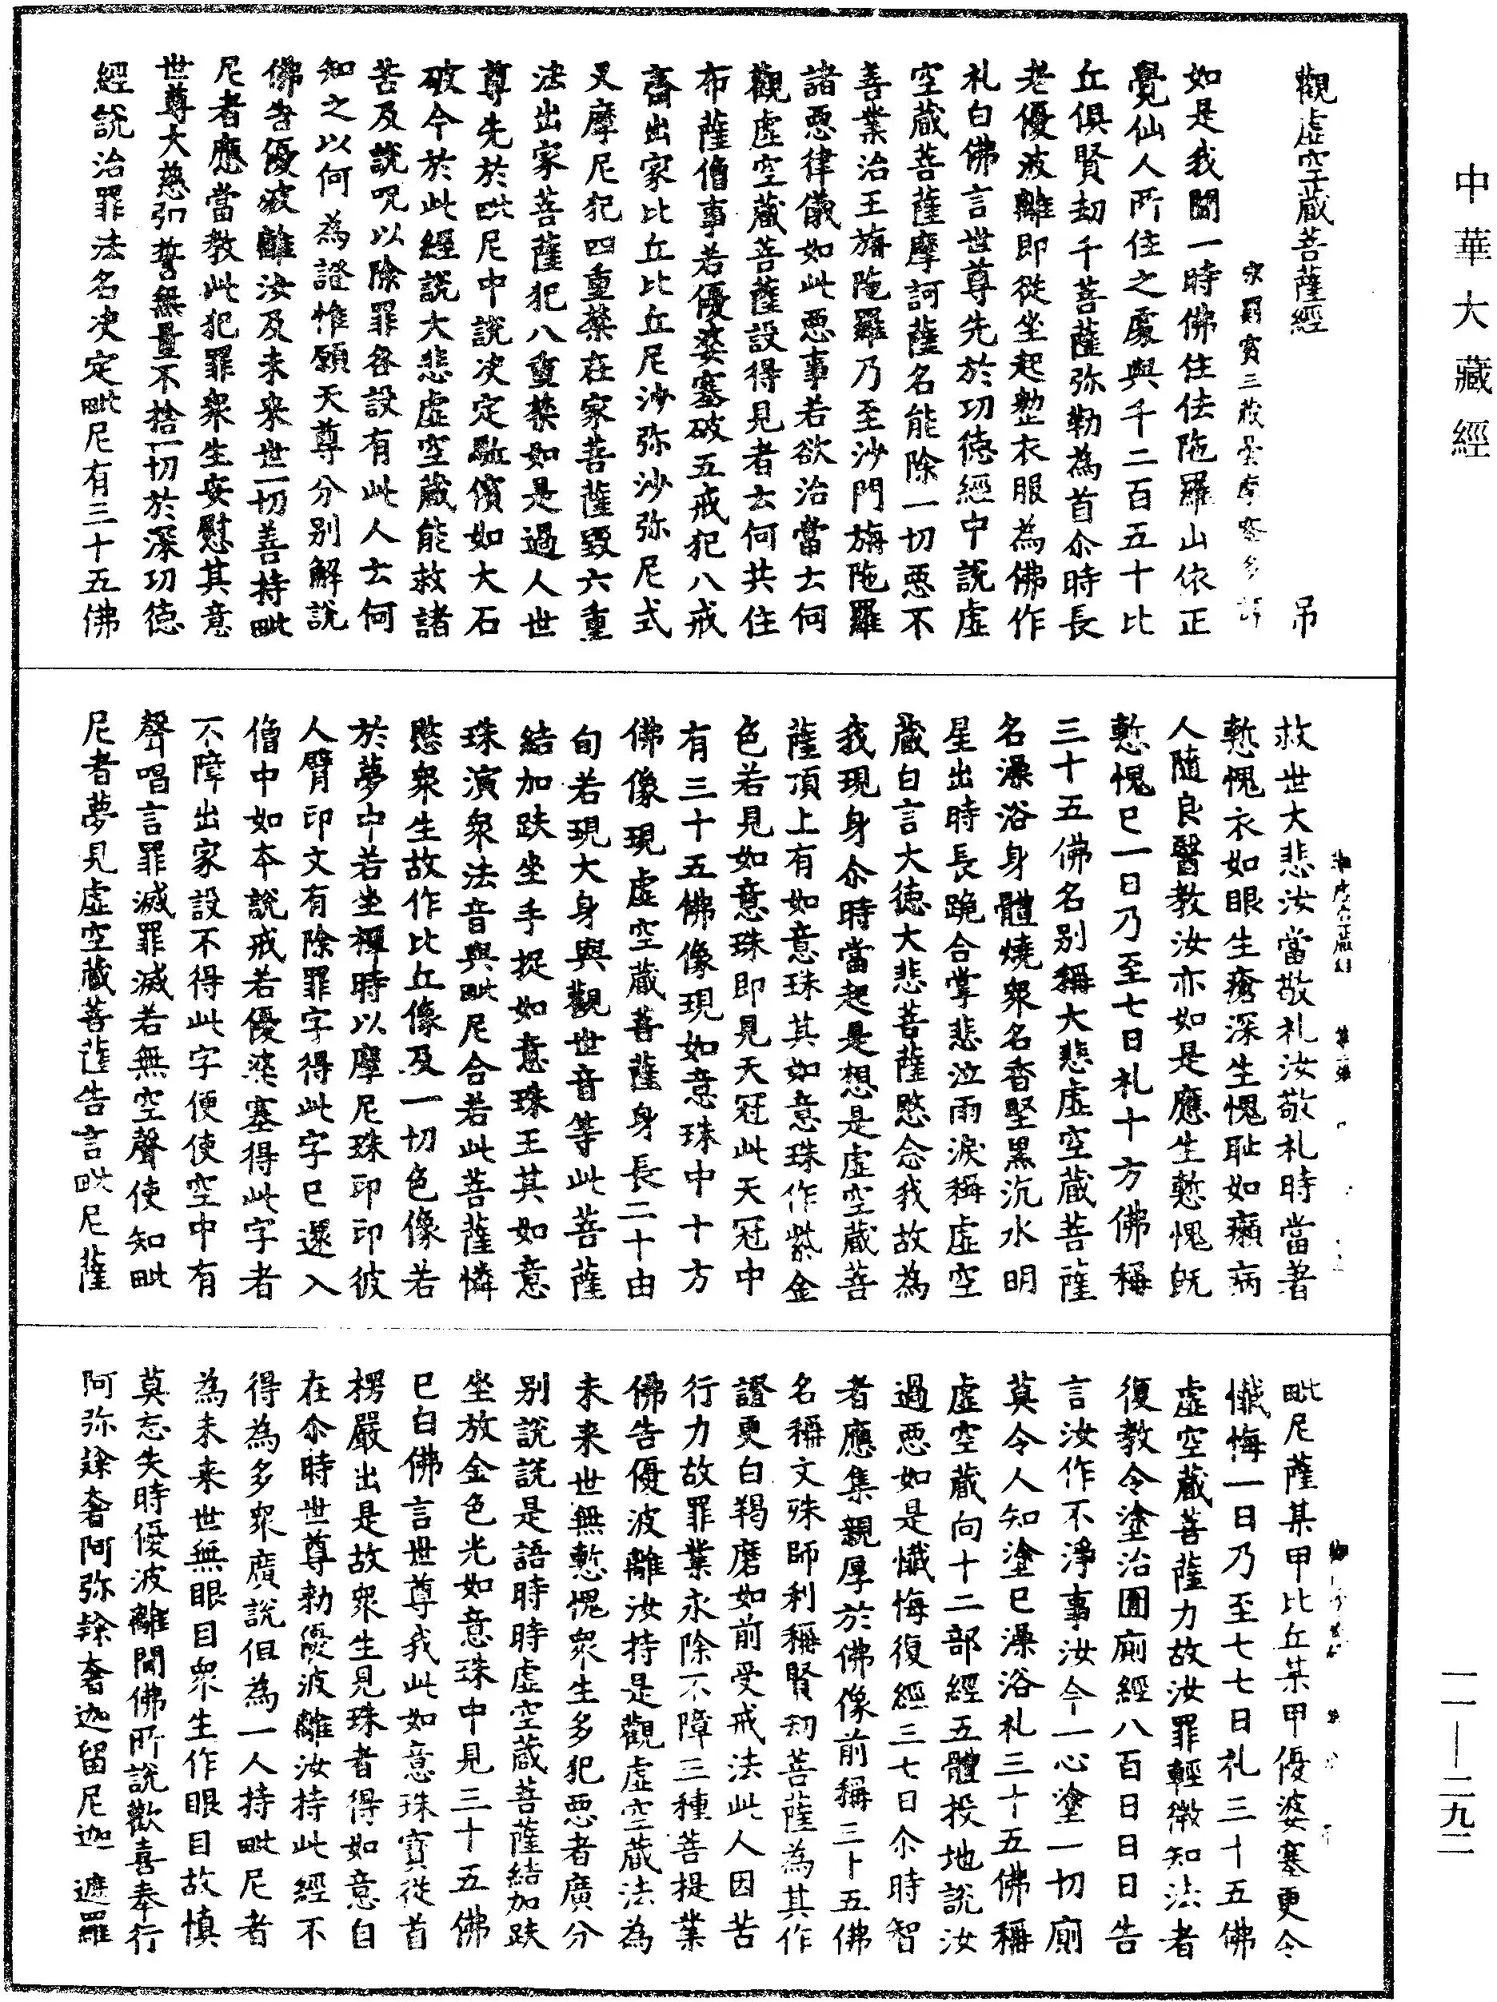 中華大藏經
觀虛空藏菩薩經 吊
宋罽賓三藏曇摩蜜多譯
如是我聞一時佛住佉陁羅山依正
覺仙人所住之處與千二百五十比
丘俱賢劫千菩薩弥勒為首尒時長
老優波離即從坐起整衣服為佛作
礼白佛言世尊先於功德經中說虛
空藏菩薩摩訶薩名能除一切惡不
善業治王旃陁羅乃至沙門旃陁羅
諸惡律儀如此惡事若欲治當云何
觀虛空藏菩薩設得見者云何共住
布薩僧事若優婆塞破五戒犯八戒
齋出家比丘比丘尼沙弥沙弥尼式
叉摩尼犯四重禁在家菩薩毀六重
法出家菩薩犯八重禁如是過人世
尊先於毗尼中說决定驅儐如大石
破今於此經說大悲虛空藏能救諸
苦及說呪以除罪咎設有此人云何
知之以何為證惟願天尊分别解說
佛告優波離汝及未來世一切善持毗
尼者應當教此犯罪衆生安慰其意
世尊大慈弘誓無量不捨一切於深功德
經說治罪法名决定毗尼有三十五佛
救世大悲汝當敬礼汝敬礼時當著
慙愧衣如眼生瘡深生愧耻如癩病
人隨良醫教汝亦如是應生慙愧旣
慙愧已一日乃至七日礼十方佛稱
三十五佛名别稱大悲虛空藏菩薩
名澡浴身體燒衆名香堅黑沉水明
星出時長跪合掌悲泣雨淚稱虛空
藏白言大德大悲菩薩愍念我故為
我現身尒時當起是想是虛空藏菩
薩頂上有如意珠其如意珠作紫金
色若見如意珠即見天冠此天冠中
有三十五佛像現如意珠中十方
佛像現虛空藏菩薩身長二十由
旬若現大身與觀世音等此菩薩
結加趺坐手捉如意珠王其如意
珠演衆法音與毗尼合若此菩薩憐
愍衆生故作比丘像及一切色像若
於夢中若坐禪時以摩尼珠印印彼
人臂印文有除罪字得此字已還入
僧中如本說戒若優婆塞得此字者
不障出家設不得此字便使空中有
聲唱言罪滅罪滅若無空聲使知毗
尼者夢見虛空藏菩薩告言毗尼薩
毗尼薩某甲比丘某甲優婆塞更令
懺悔一日乃至七七日礼三十五佛
虛空藏菩薩力故汝罪輕微知法者
復教令塗治圊廁經八百日日日告
言汝作不淨事汝今一心塗一切廁
莫令人知塗已澡浴礼三十五佛稱
虛空藏向十二部經五體投地說汝
過惡如是懺悔復經三七日尒時智
者應集親厚於佛像前稱三十五佛
名稱文殊師利稱賢劫菩薩為其作
證更白羯磨如前受戒法此人因苦
行力故罪業永除不障三種菩提業
佛告優波離汝持是觀虛空藏法為
未来世無慙愧衆生多犯惡者廣分
别說說是語時時虛空藏菩薩結加趺
坐放金色光如意珠中見三十五佛
已白佛言世尊我此如意珠寶從首
楞嚴出是故衆生見珠者得如意自
在尒時世尊勑優波離汝持此經不
得為多衆廣說但為一人持毗尼者
為未来世無眼目衆生作眼目故慎
莫忘失時優波離聞佛所說歡喜奉行
阿弥𨅖奢阿弥𨅖奢迦留尼迦 遮羅
一一—二九二